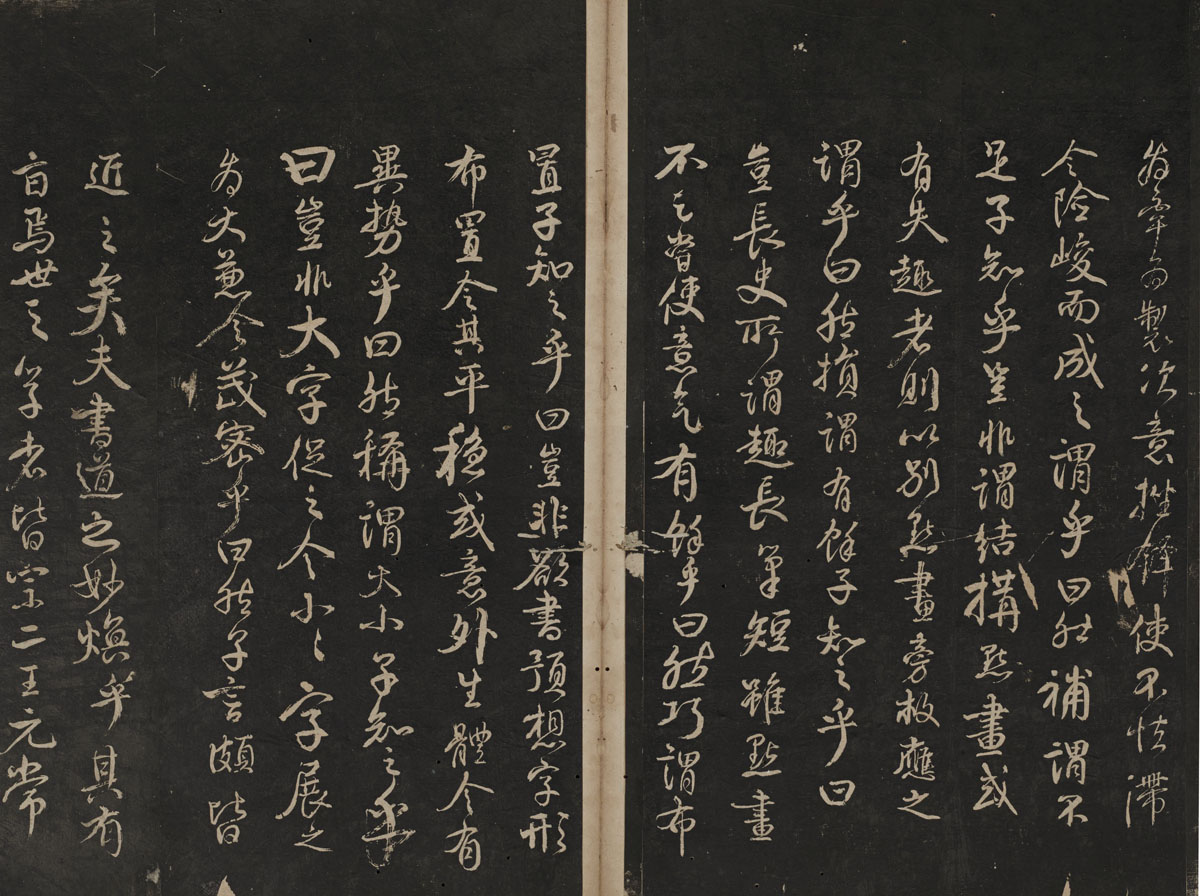 為牽為製决意挫鋒使不怯滯
令險峻而成之謂乎曰然補謂不
足子知乎豈非謂結搆點畫或
有失趣者則以別點畫旁救應之
謂乎曰然損謂有餘子知之乎曰
豈長史所謂趣長筆短雖點畫
不足嘗使意氣有餘乎曰然巧謂布
置子知之乎曰豈非欲書預想字形
布置令其平穩或意外生體令有
異勢乎曰然稱謂大小子知之乎
曰豈非大字促之令小々字展之
為大兼令茂密乎曰然子言頗皆
近之矣夫書道之妙煥乎具有
旨焉世之學者皆宗二王元常